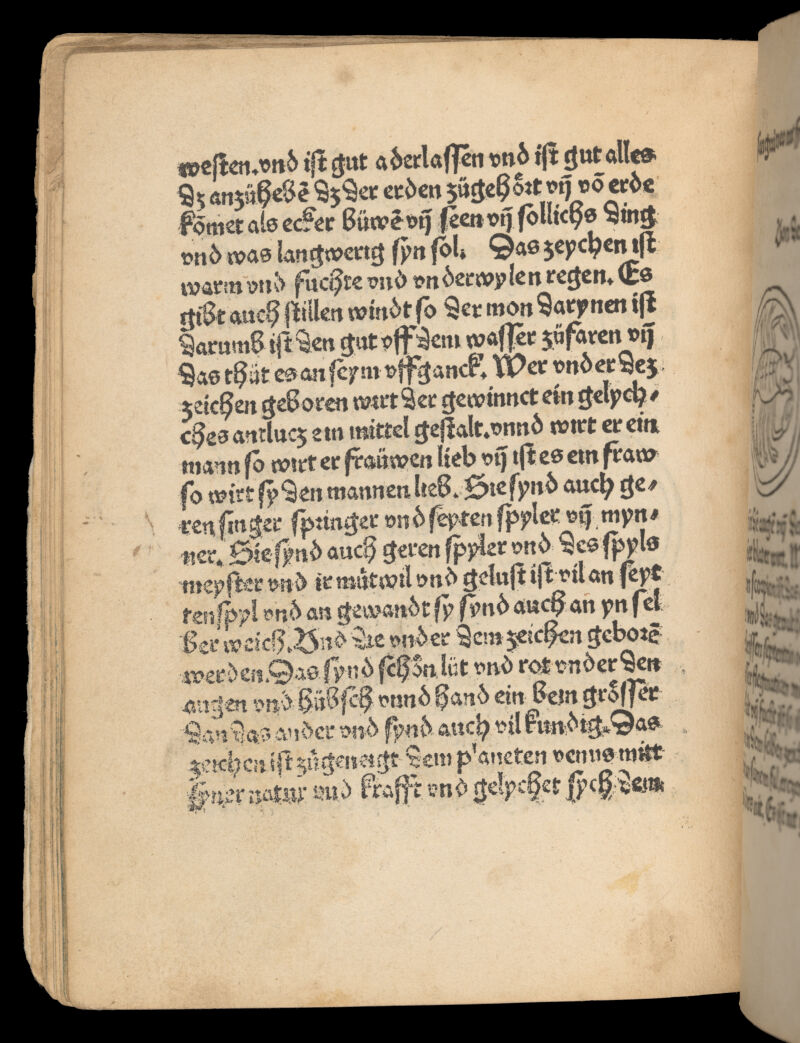 westen.vnd ist gut aderlassen vnd ist gut alles
dz anzühebē dz der erden zügehört vn̄ vō erde
kōmet als ecker büwē vn̄ seen vn̄ sollichs ding
vnd was langwerig syn sol. Das zeychen ist
warm vnd fuchte vnd vnderwylen regen. Es
gibt auch stillen windt so der mon darynen ist
darumb ist den gut vff dem wasser züfaren vn̄
das thüt es an seym vffganck. Wer vnder dez
zeichen geboren wirt der gewinnet ein gelych⸗
ches antlucz ein mittel gestalt.vnnd wirt er ein
mann so wirt er fraüwen lieb vn̄ ist es ein fraw
so wirt sy den mannen lieb. Sie synd auch ge⸗
ren singer springer vnd seyten spyler vn̄ myn⸗
ner. Sie synd auch geren spyler vnd des spyls
meyster vnd ir mütwil vnd gelust ist vil an seyt
tenspyl vnd an gewandt sy synd auch an yn sel
ber weich. Vnd die vnder dem zeichen geborē
werden. Das synd schön lüt vnd rot vnder den
augen vnd hübsch vnnd hand ein bein grösser
dan das ander vnd synd auch vil kundig. Das
zeichen ist zügeneigt dem planeten venus mitt
syner natur vnd krafft vnd gelychet sych dem